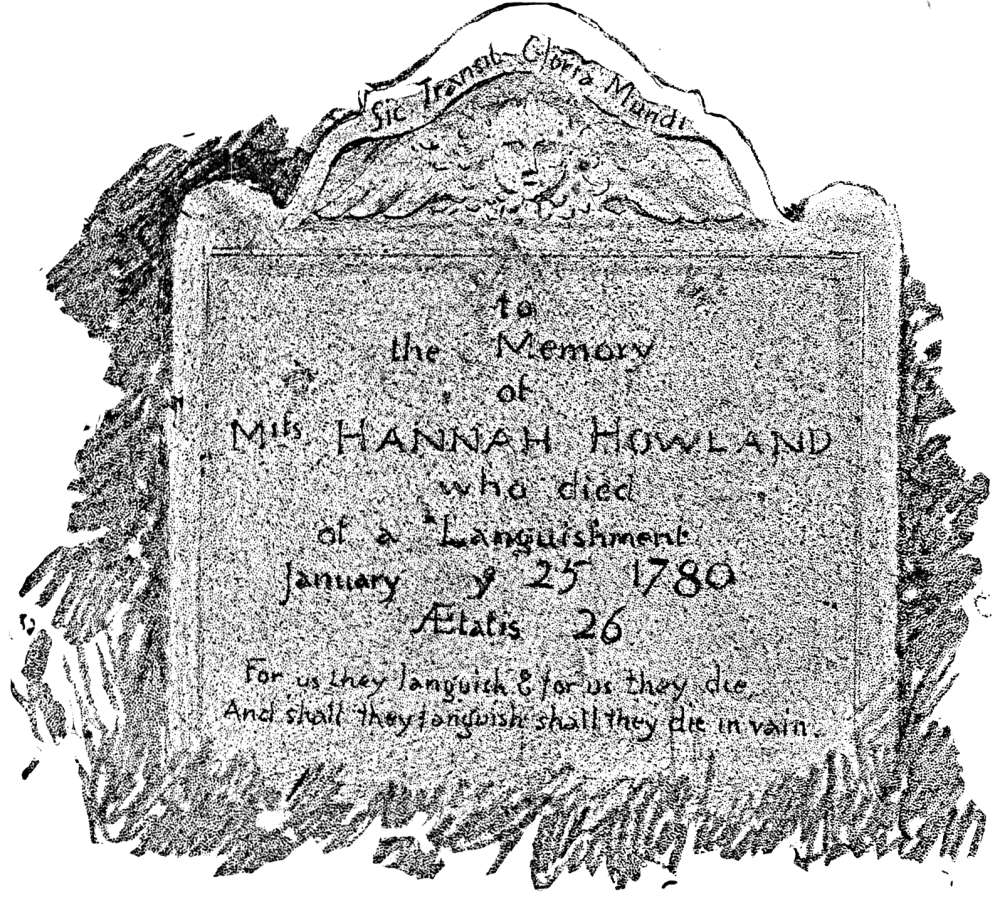 Sic Transit Gloria Mundi
to
the Memory
of
Mifs HANNAH HOWLAND
who died
of a Languishment
January y 25 1780
Ætatis 26
For us they languish & for us they die,
And shall they languish shall they die in vain.